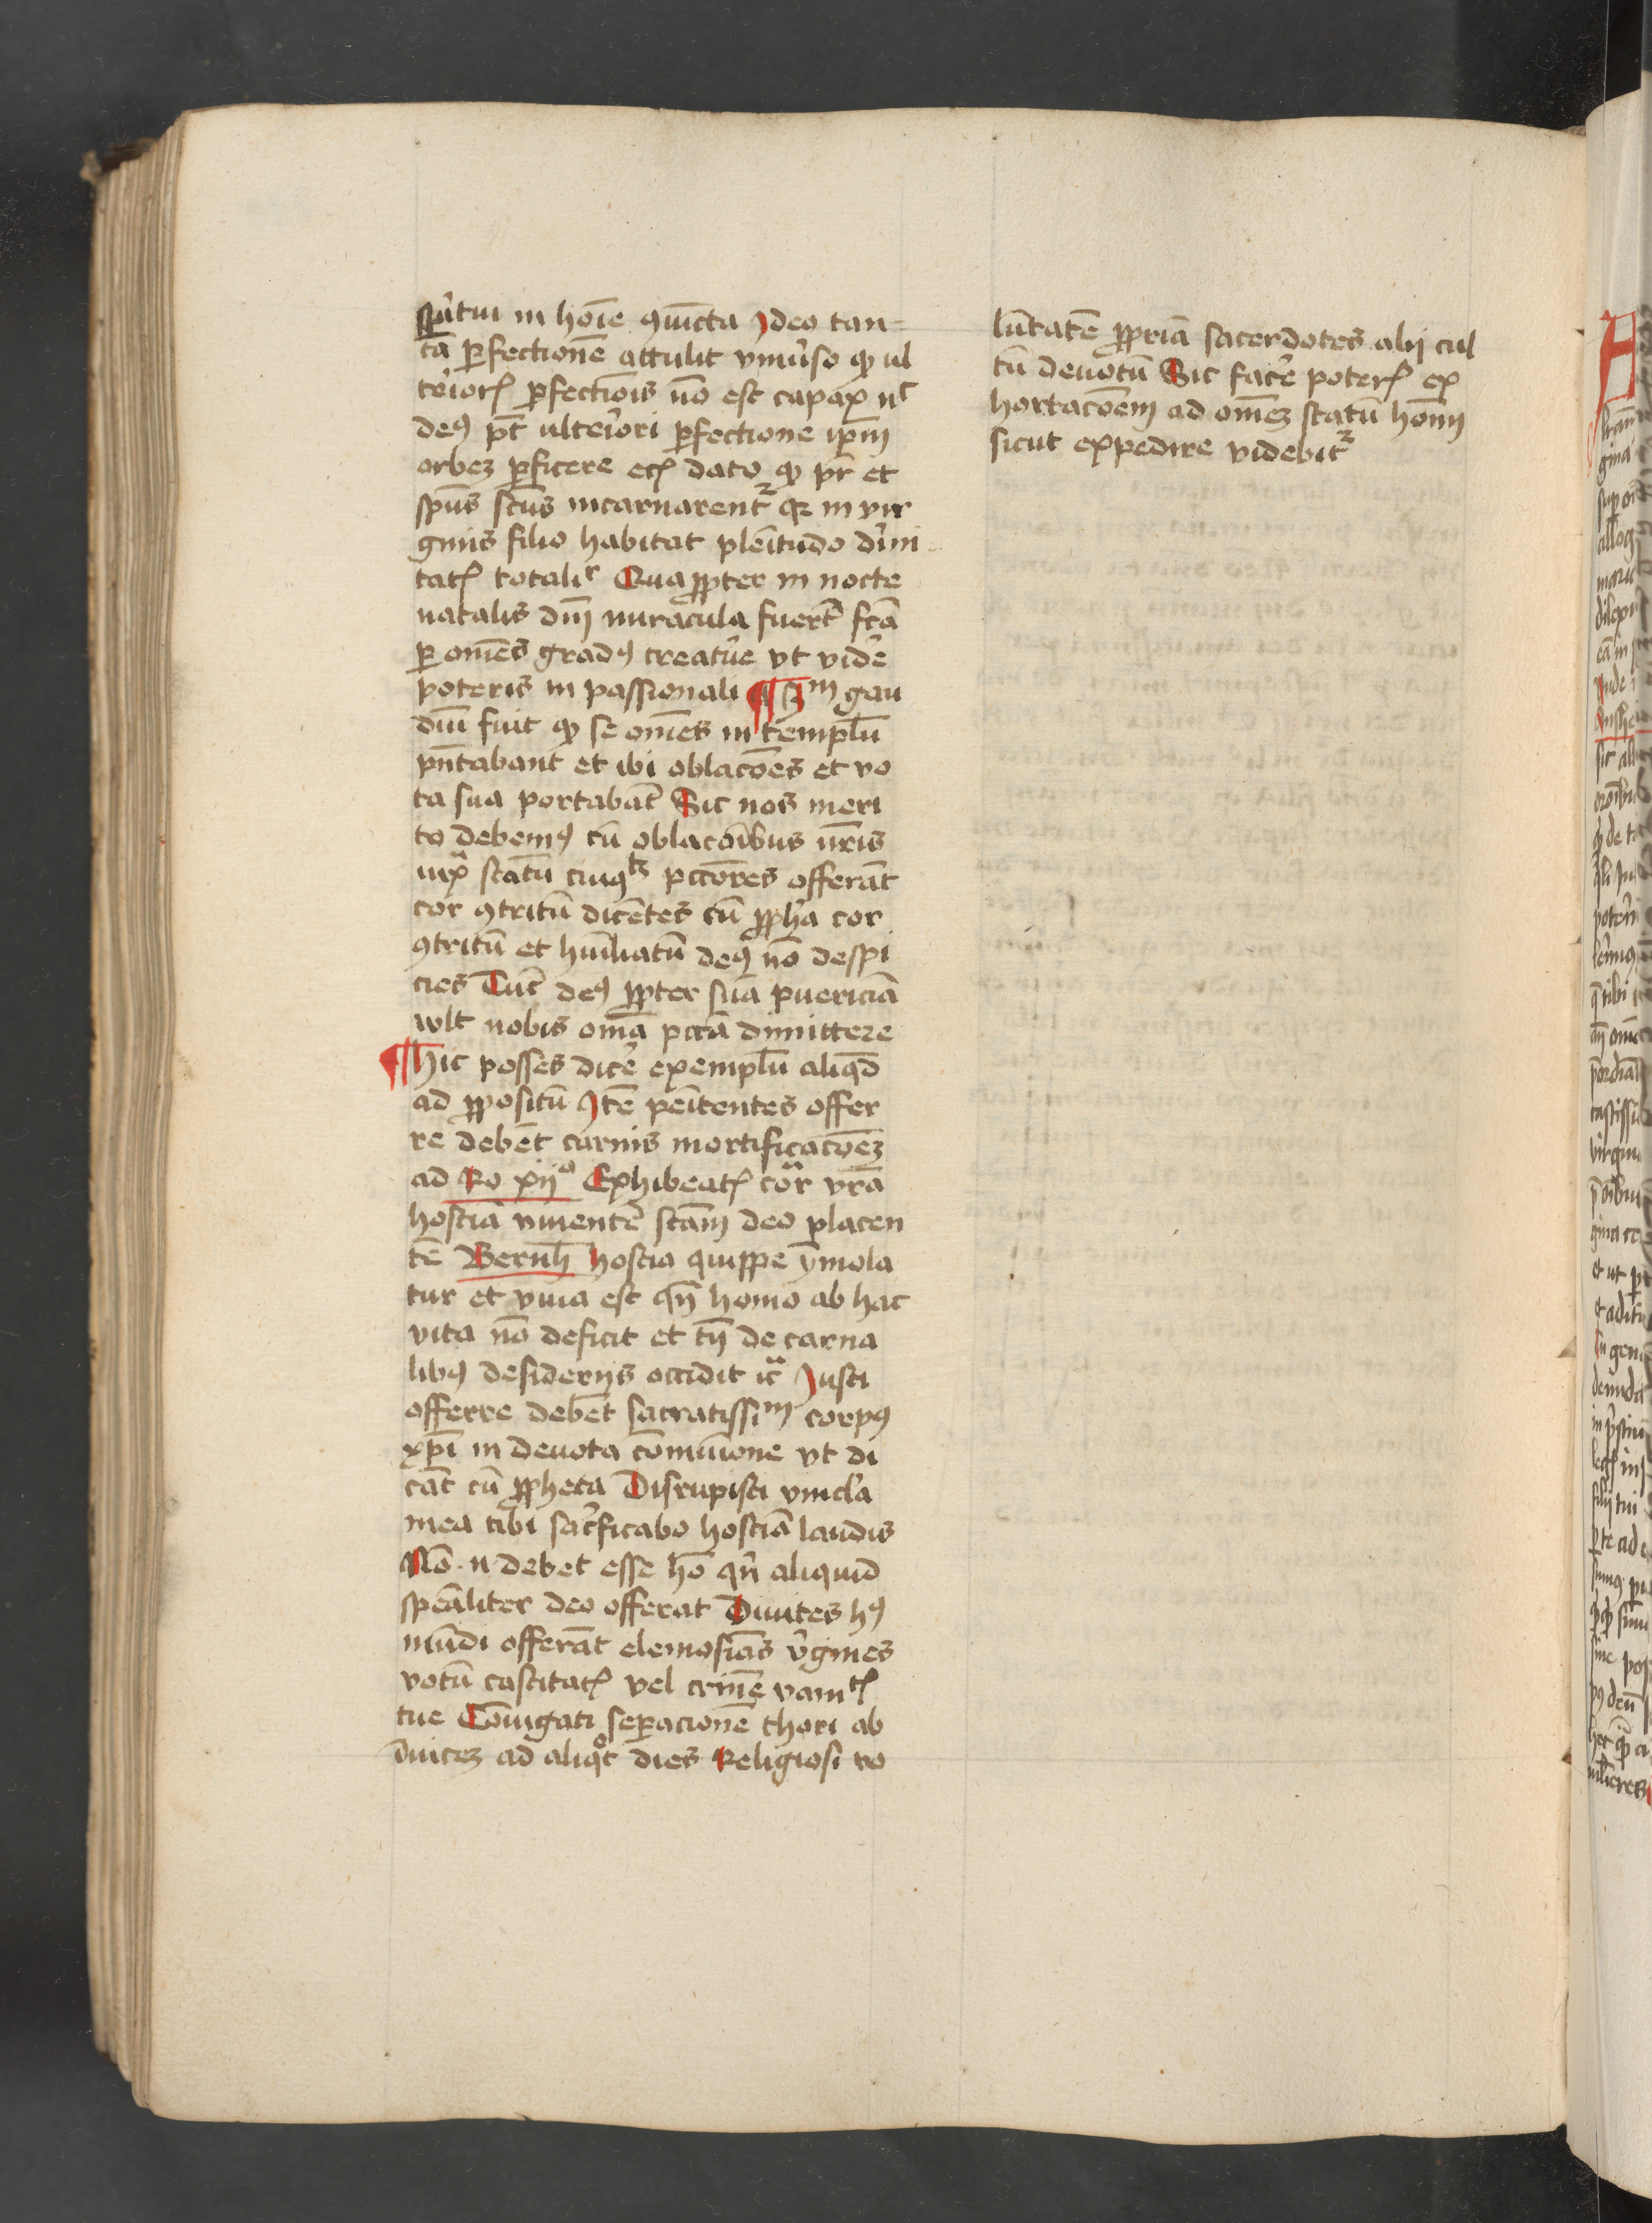 spūitui in hoīe ꝯuīcta Ideo tan=
tā ꝑfectionē attulit vniūso ꝙ ul
teriorꝭ ꝑfectiōis nō est capax nͨ
deꝰ pt̄ ulteriori ꝑfectione ipm̄
orbeꝫ ꝑficere ecꝭ dato ꝙ pr̄ et
spūs scūs incarnarentᷣ qꝛ in vir
ginis filio habitat plenītudo diuī
tatꝭ totalit Quaꝓpter in nocte
natalis dn̄i miracula fuert̄ fc̄a
ꝑ omēs gradꝰ creatūe vt vidē
poteris in passionali ¶ 3ᵐ gau
diū fuit ꝙ se omēs in templū
pn̄tabant et ibi oblacōes et vo
ta sua portabāt Sic nos meri
to debemꝰ cū oblacōibus nr̄is
iuxᵃ statū cuiuꝰlꝫ pccōres offerāt
cor ꝯtritū dicētes cū ꝓphā cor
ꝯtritū et hūiliatū deꝰ nō despi
cies Tūc deꝰ ꝓpter suā puericiā
wlt nobis om̄ia pccā dimittere
¶ Hic posses dicē exemplū aliqd̄
ad ꝓpositū Itē penītentes offer
re debēt carnis mortificacōeꝫ
ad Ro xijᵒ Exhibeatꝭ cor̄ vrā
hostiā viuentē scām deo placen
tē Bernh̄ hostia quippe ymola
tur et viua est qn̄ homo ab hac
vita nō deficit et tn̄ de carna
libꝰ desiderijs occidit icᷓ Iusti
offerre debēt sacratissiᵐ corpꝰ
xp̄i in deuota cōmuione vt di
cāt cū ꝓpheta Disrupisti vincl̄a
mea tibi sacrficabo hostiā laudis
Nō · n · debet esse hō qn̄ aliquid
specāliter deo offerat Diuites hꝰ
mūdi offerāt elemosīas v̄gines
votū castitatꝭ vel crinē vanitꝭ
tue Cōiugati seꝑacionē thori ab
īuiceꝫ ad aliqᵒt dies Religiosi vo
lūtatē ꝓpriā sacerdotes alij cul
tū deuotū Sic facē poterꝭ ex
hortacōem ad omēꝫ statū homī
sicut expedire videbitᷣ